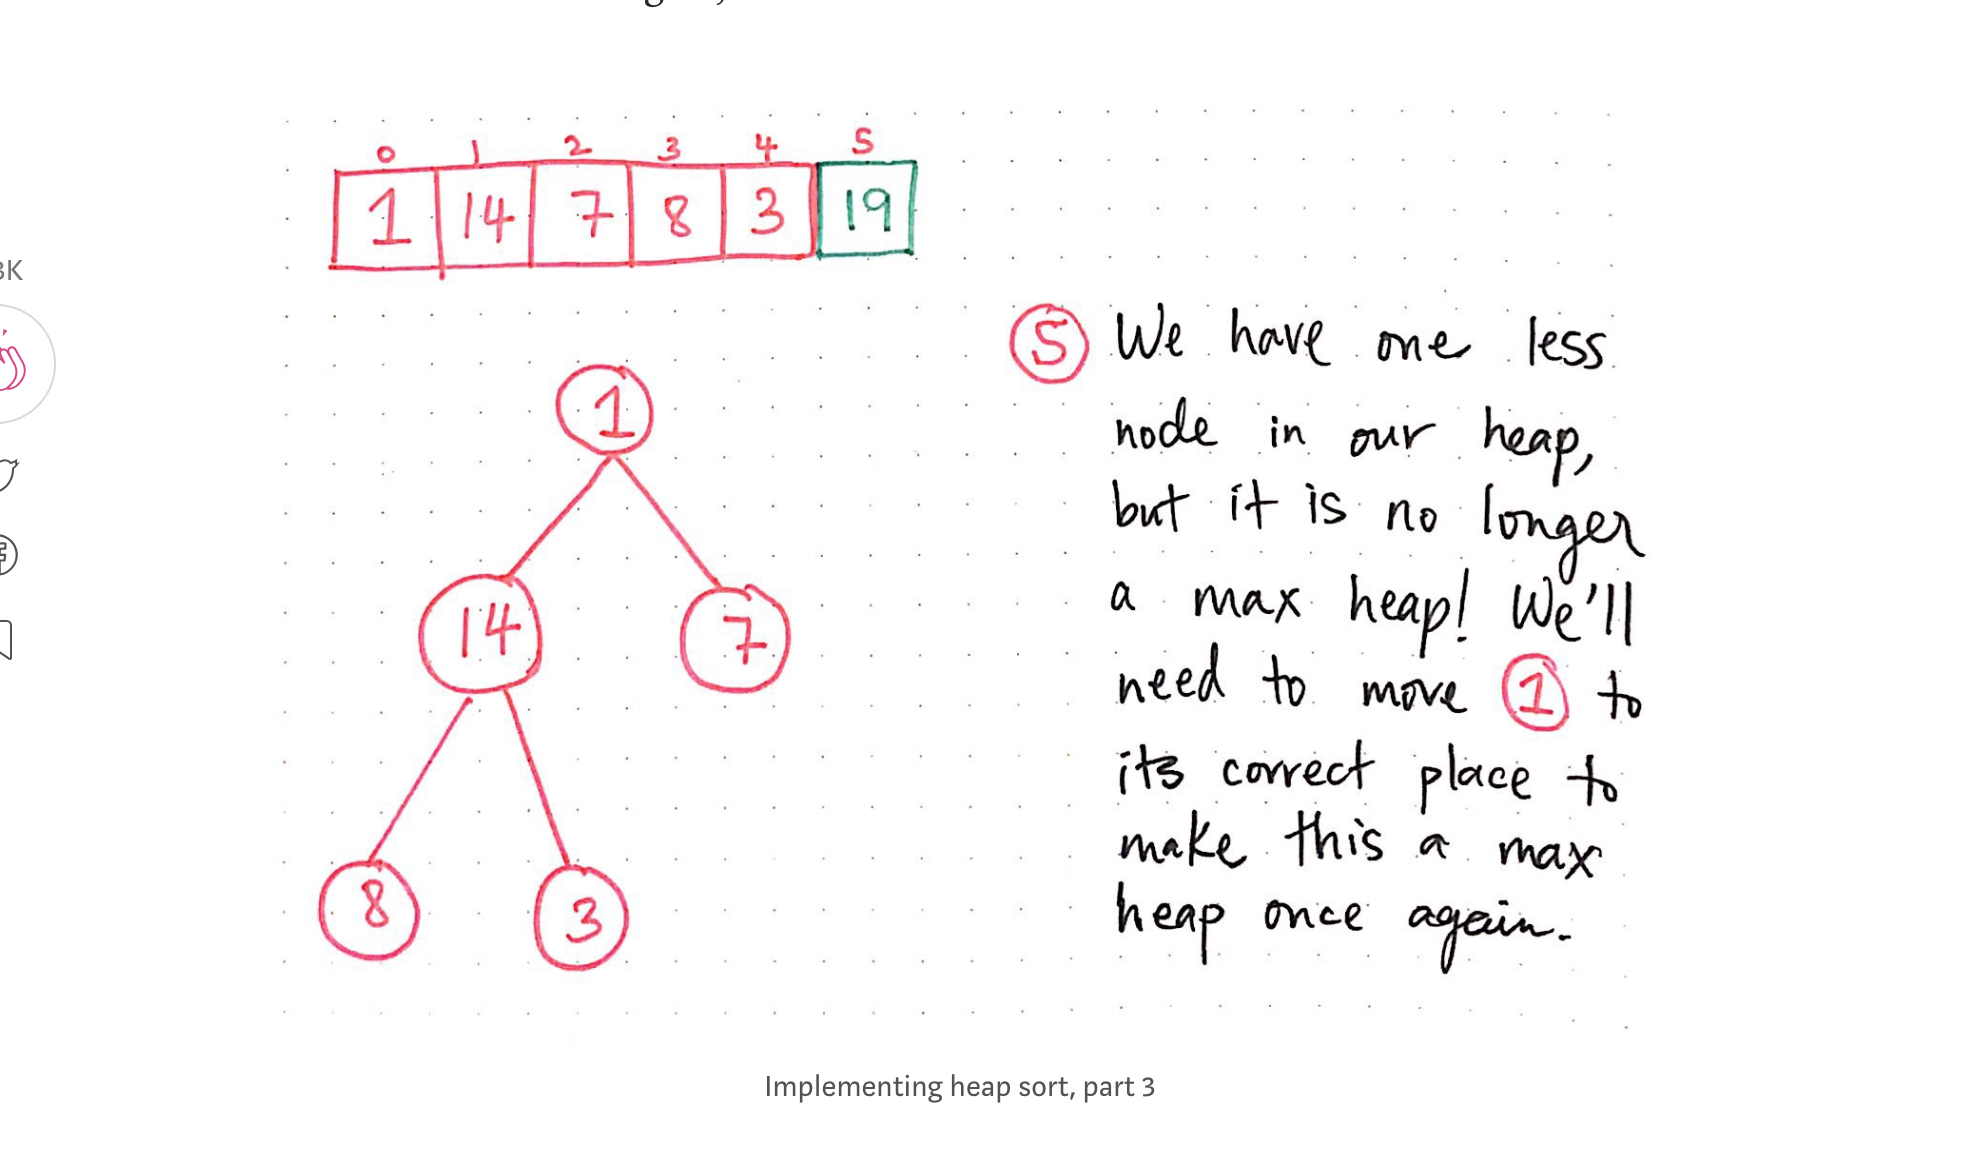 0 1 2 3 4 5
1 14 7 8 3 19
3K
1
14 7
8 3
5 We have one less
node in our heap,
but it is no longer
a max heap! We'll
need to move 1 to
its correct place to
make this a max
heap once again.
Implementing heap sort, part 3